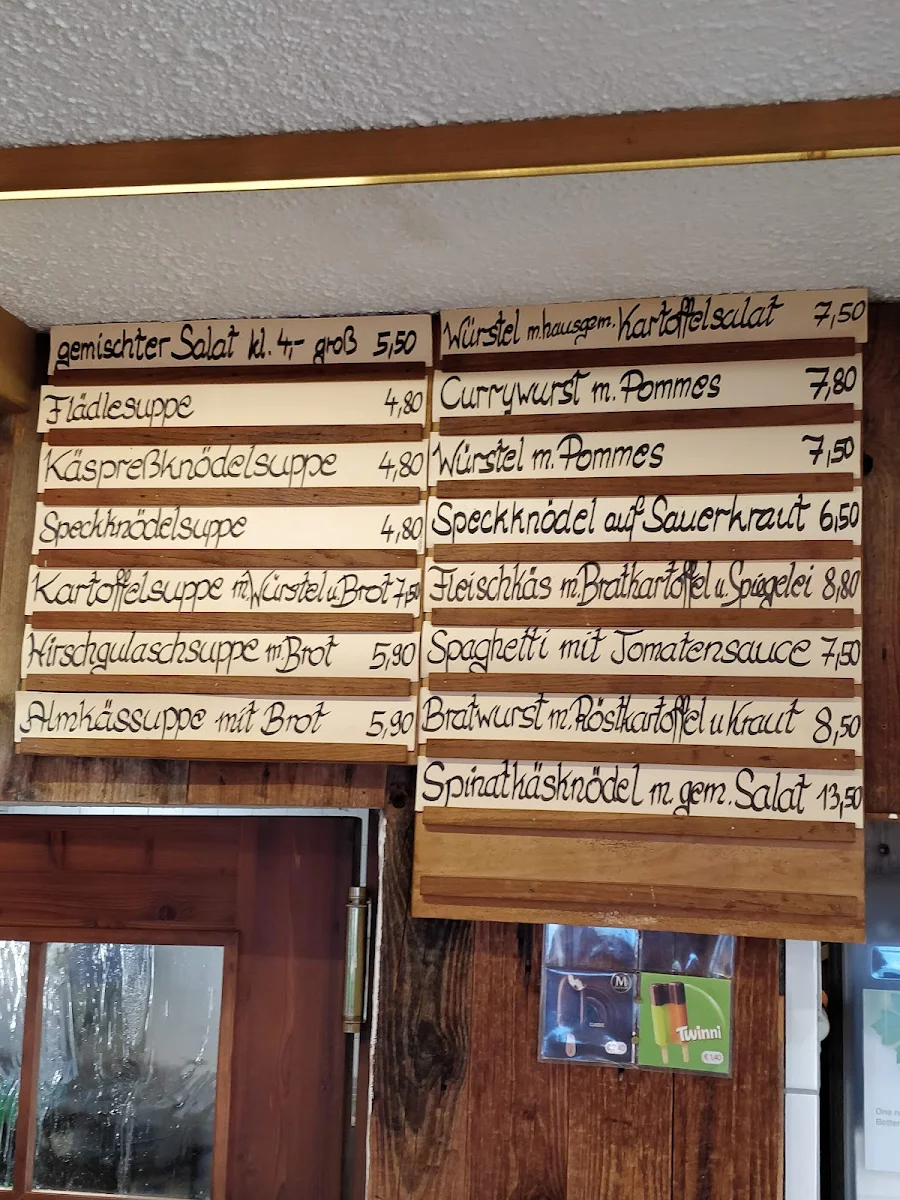 gemischter Salat kl. 4,- groß 5,50
Flädlesuppe 4,80
Käspreßknödelsuppe 4,80
Speckknödelsuppe 4,80
Kartoffelsuppe m. Würstel u. Brot 7,50
Hirschgulaschsuppe m. Brot 5,90
Almkässuppe mit Brot 5,90
Würstel m. hausgem. Kartoffelsalat 7,50
Currywurst m. Pommes 7,80
Würstel m. Pommes 7,50
Speckknödel auf Sauerkraut 6,50
Fleischkäs m. Bratkartoffel u. Spiegelei 8,80
Spaghetti mit Tomatensauce 7,50
Bratwurst m. Röstkartoffel u Kraut 8,50
Spinatkäsknödel m. gem. Salat 13,50
M
CLASSIC
Twinni
€ 1,40